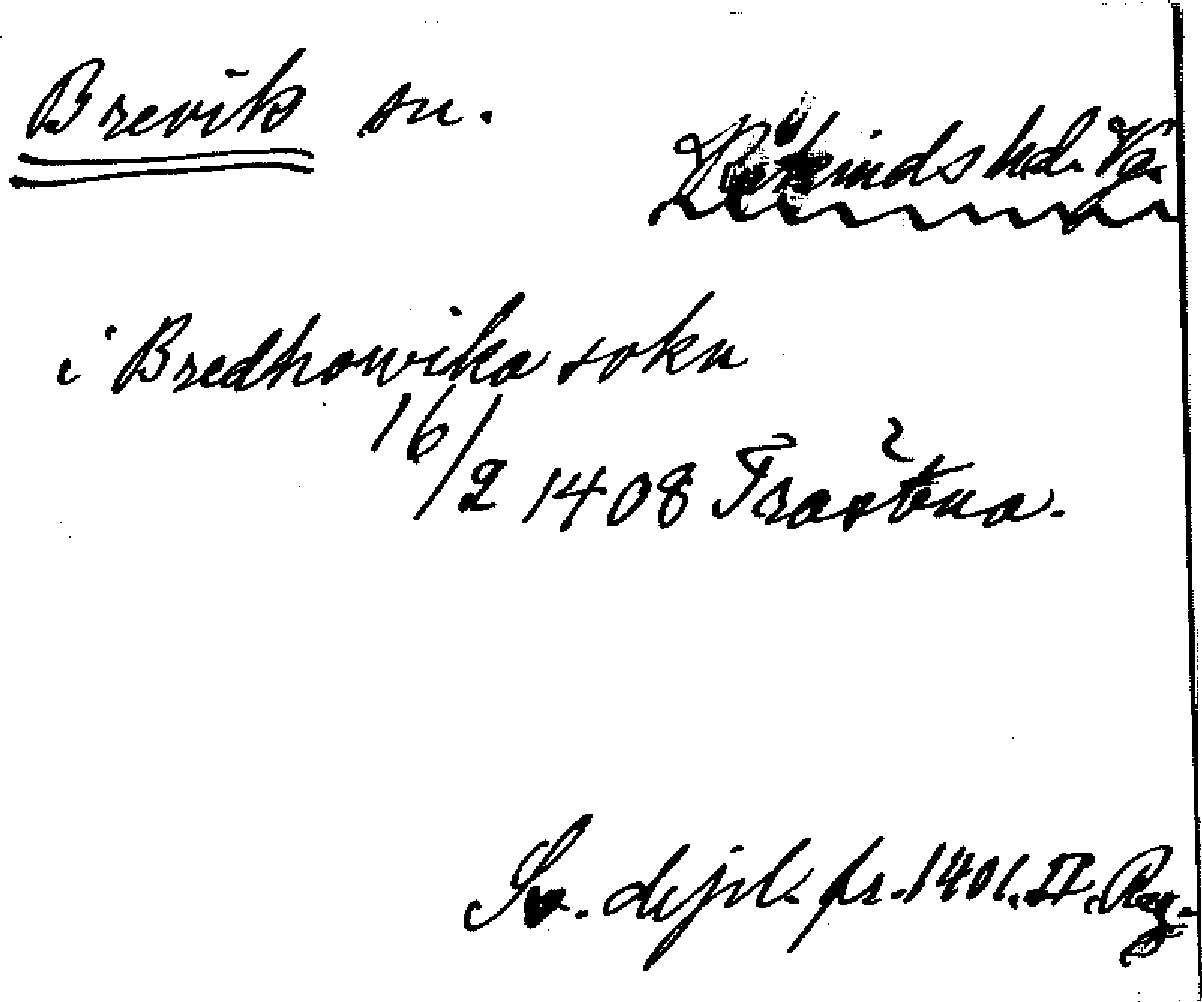 Brevik sn.
Kåkinds hd. Vg.
i Bredhowika sokn
16/2 1408 Trästena.
Sv. dipl. fr. 1401. II. Reg.